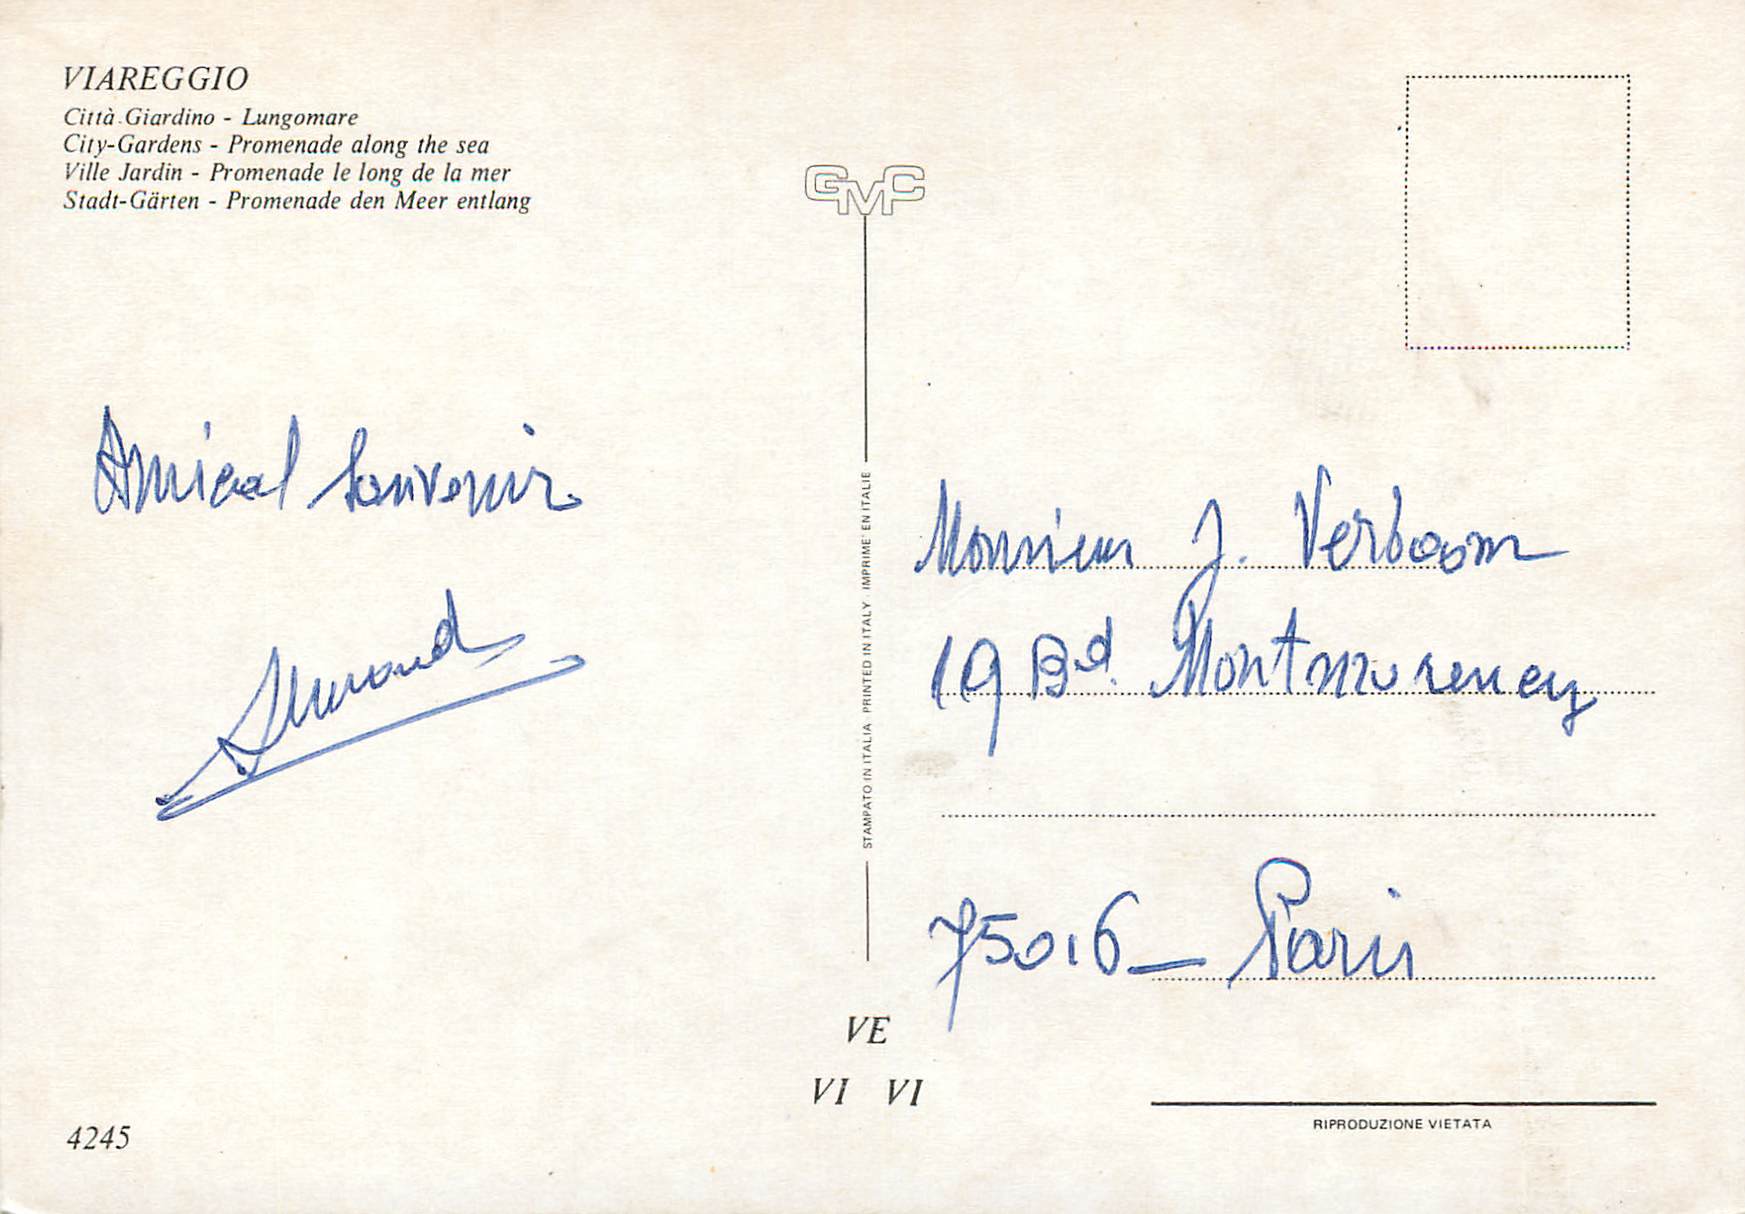 VIAREGGIO
Città Giardino - Lungomare
City-Gardens - Promenade along the sea
Ville Jardin - Promenade le long de la mer
Stadt-Gärten - Promenade den Meer entlang
GMC
Amical Souvenir
STAMPATO IN ITALIA - PRINTED IN ITALY - IMPRIME' EN ITALIE
Monsieur J. Verboom
19 Bd. Montmorency
75016 - Paris
VE
VI VI
4245
RIPRODUZIONE VIETATA